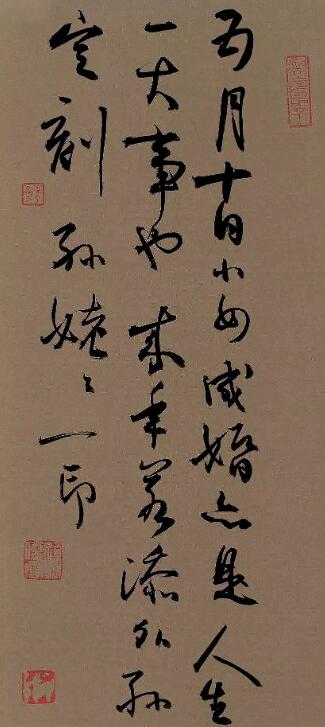 五月十日小女成婚亦是人生
一大事也来年若添外孙
定刻孙姥々一印